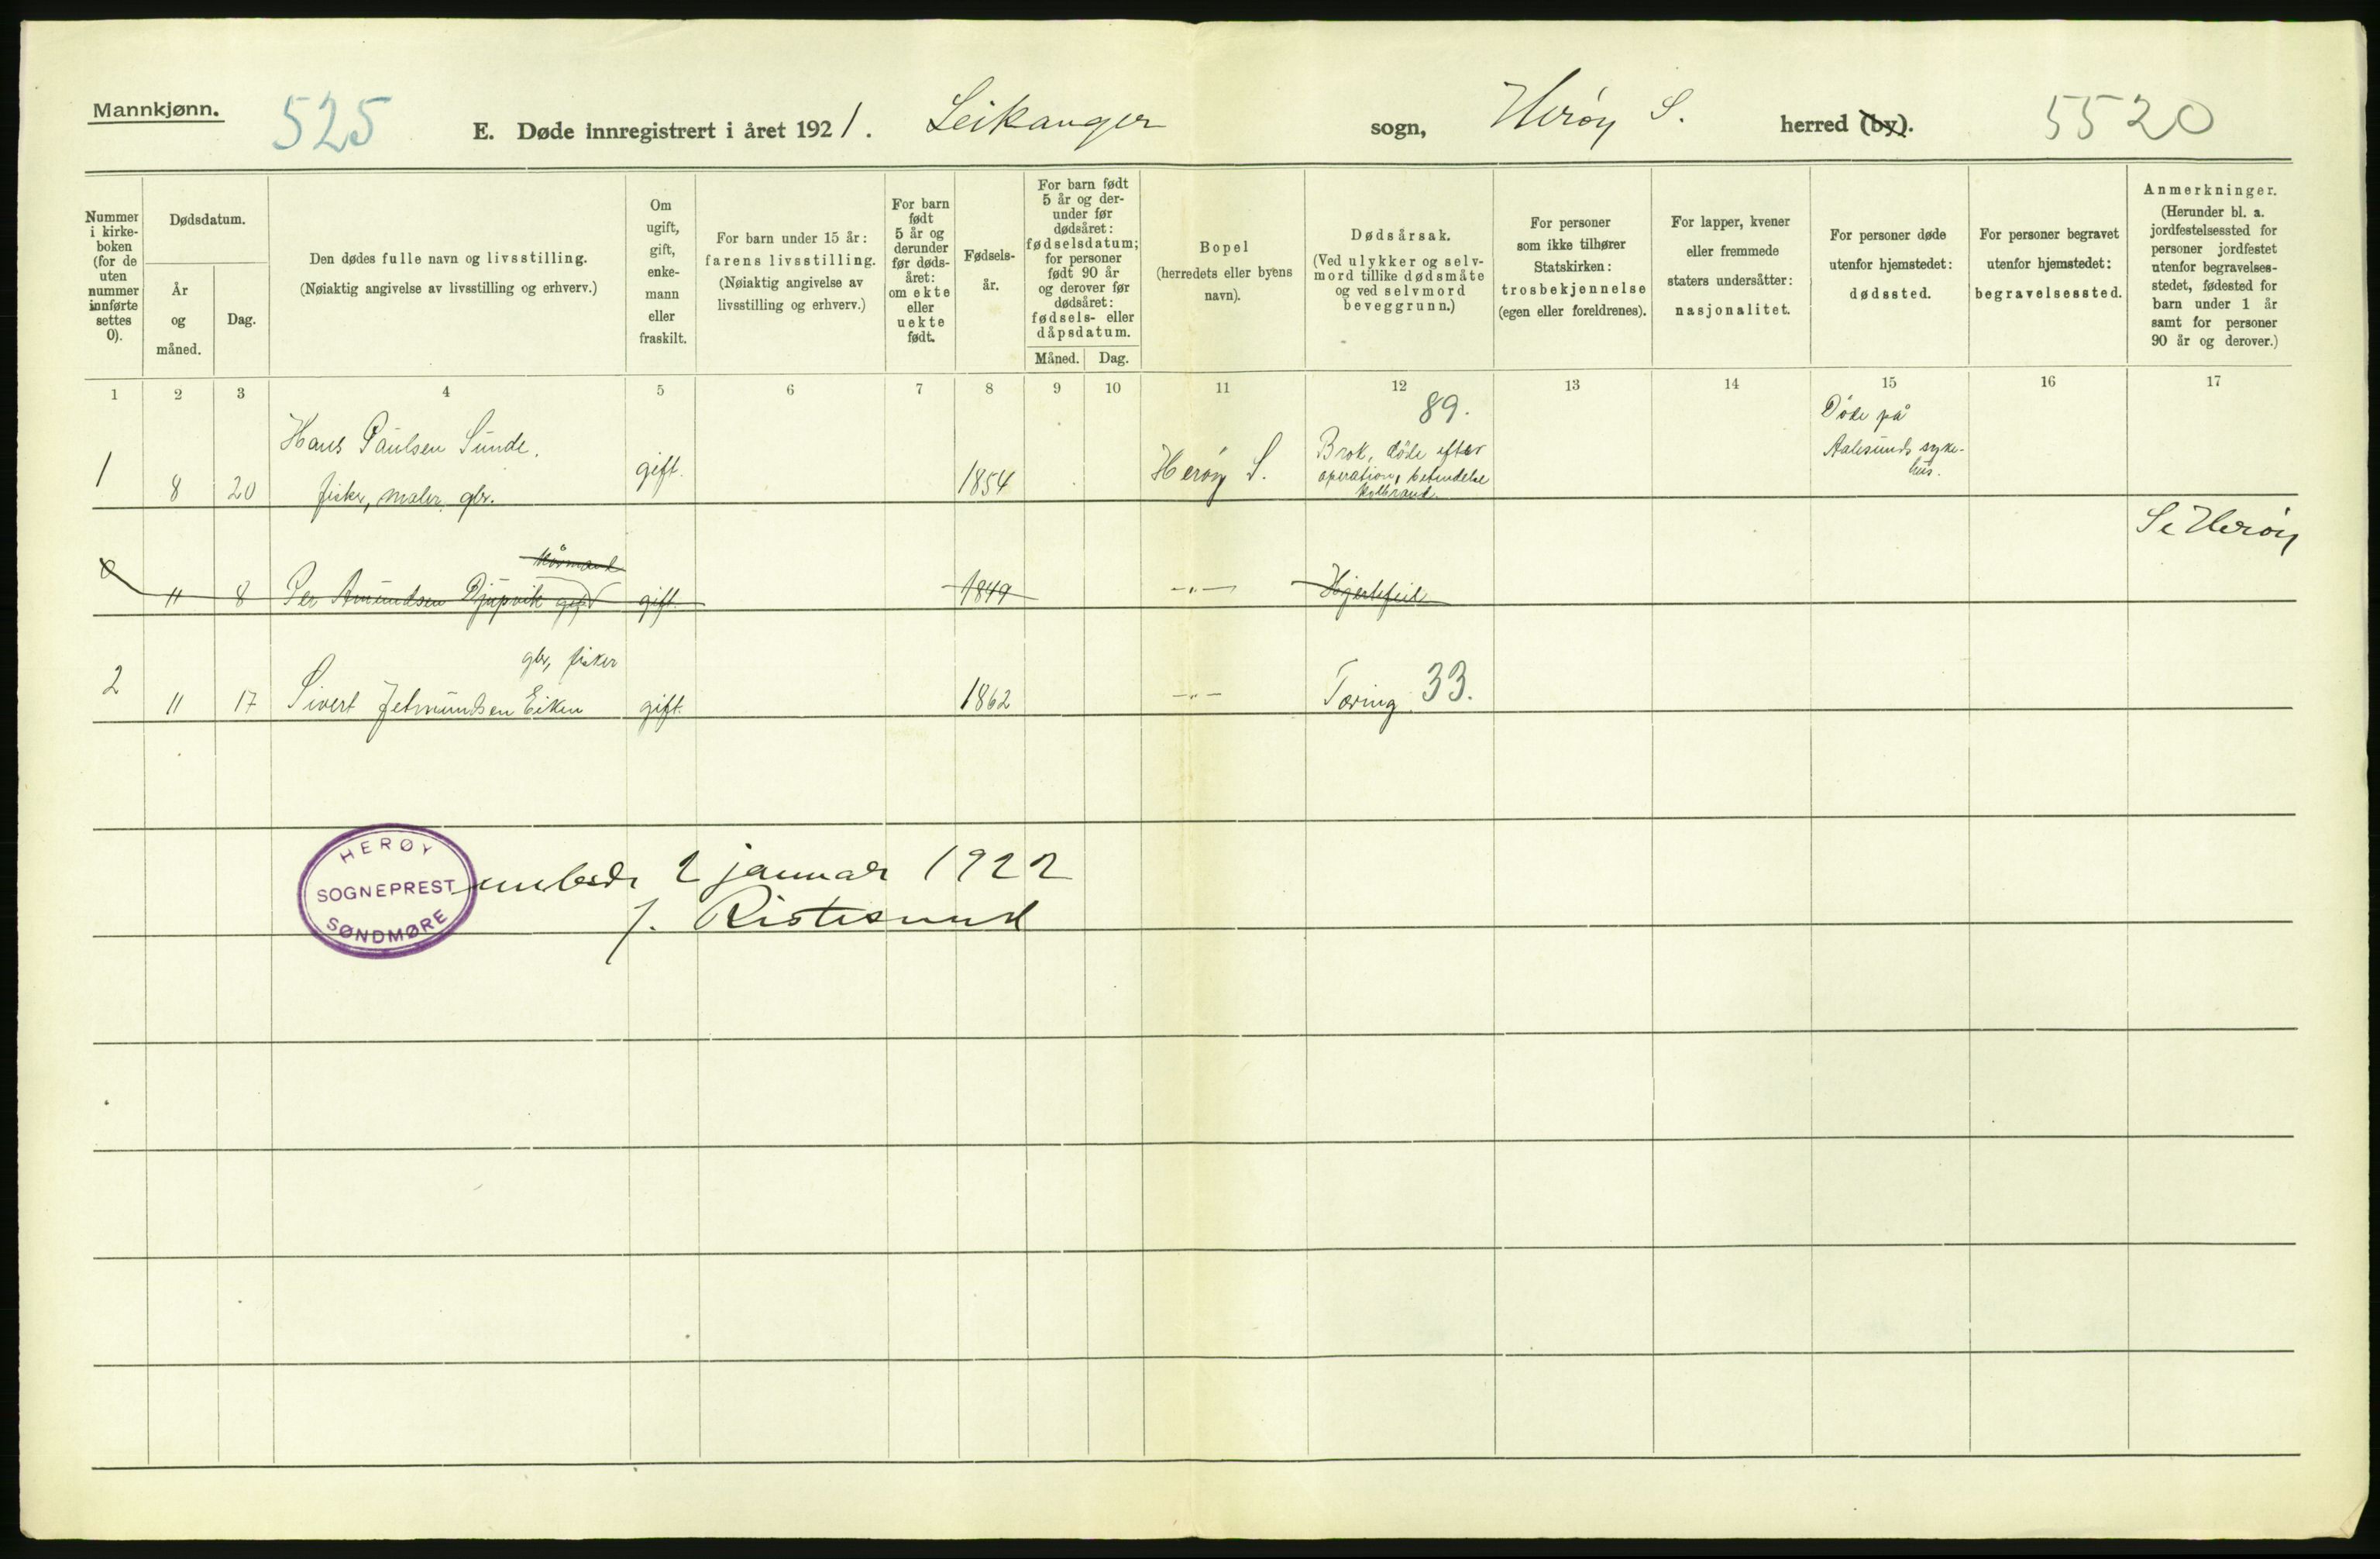 Mannkjønn.
525
E. Døde innregistrert i året 1921. Leikanger sogn, Herøy S. herred (by).
5520
Nummer
i kirke-
boken
(for de
uten
nummer
innførte
settes
0).
Dødsdatum.
År
og
måned.
Dag.
Den dødes fulle navn og livsstilling.
(Nøiaktig angivelse av livsstilling og erhverv.)
Om
ugift,
gift,
enke-
mann
eller
fraskilt.
For barn under 15 år:
farens livsstilling.
(Nøiaktig angivelse av
livsstilling og erhverv.)
For barn
født
5 år og
derunder
før døds-
året:
om ekte
eller
uekte
født.
Fødsels-
år.
For barn født
5 år og der-
under før
dødsåret:
fødselsdatum;
for personer
født 90 år
og derover før
dødsåret:
fødsels- eller
dåpsdatum.
Måned. Dag.
Bopel
(herredets eller byens
navn).
Dødsårsak.
(Ved ulykker og selv-
mord tillike dødsmåte
og ved selvmord
beveggrunn.)
For personer
som ikke tilhører
Statskirken:
trosbekjennelse
(egen eller foreldrenes).
For lapper, kvener
eller fremmede
staters undersåtter:
nasjonalitet.
For personer døde
utenfor hjemstedet:
dødssted.
For personer begravet
utenfor hjemstedet:
begravelsessted.
Anmerkninger.
(Herunder bl. a.
jordfestelsessted for
personer jordfestet
utenfor begravelses-
stedet, fødested for
barn under 1 år
samt for personer
90 år og derover.)
1 2 3 4 5 6 7 8 9 10 11 12 13 14 15 16 17
1 8 20
Hans Paulsen Sunde.
fisker, maler, gbr.
gift.
1854
Herøy S.
89.
Brok, døde efter
operation, betendelse
Døde på
Aalesunds syke-
hus.
0 11 8
Kårmand
Per Amundsen Djupvik
gift
1849
-"-
Hjertefeil
Se Herøy
2 11 17
gbr, fisker
Sivert Jetmundsen Eiken
gift.
1862
-"-
Tæring 33.
HERØY
SOGNEPREST
SØNDMØRE
embede 2 januar 1922
J. Ristesund